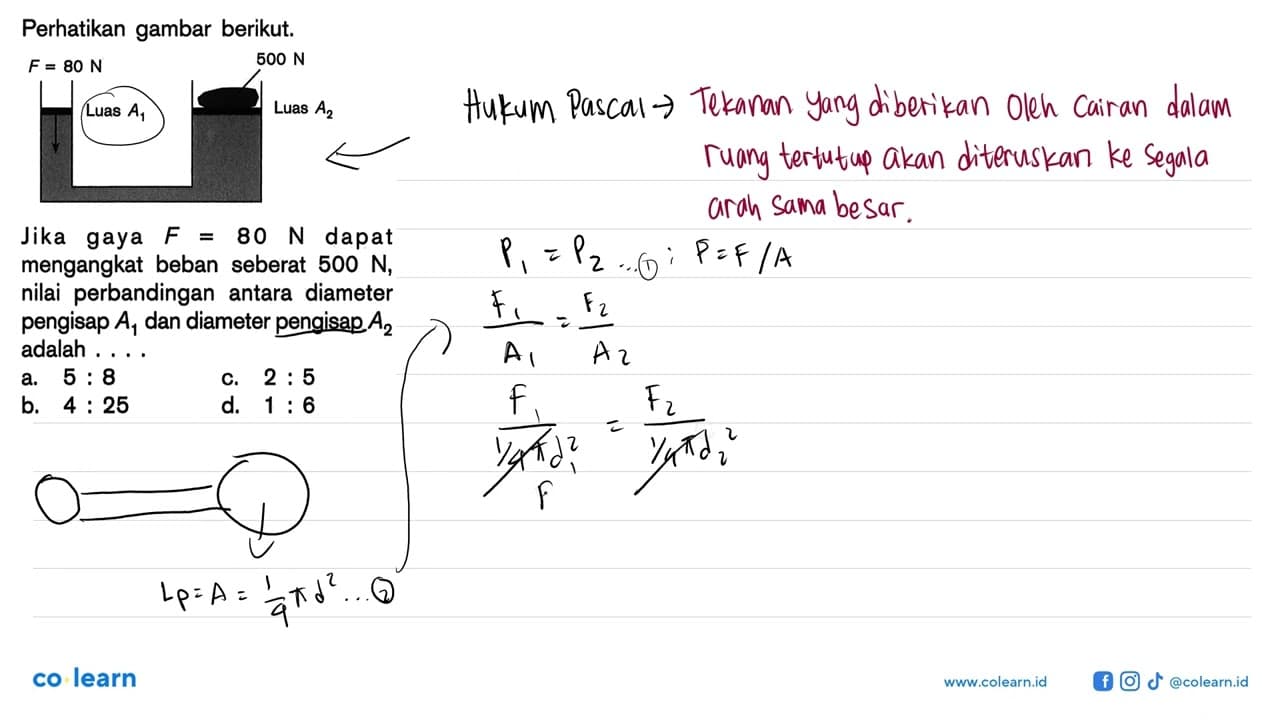 Perhatikan gambar berikut.
F = 80 N
500 N
Luas A₁
Luas A₂
Jika gaya F = 80 N dapat
mengangkat beban seberat 500 N,
nilai perbandingan antara diameter
pengisap A₁ dan diameter pengisap A₂
adalah . . . .
a. 5 : 8 c. 2 : 5
b. 4 : 25 d. 1 : 6
Lp = A = 1/4 πd² ... ②
Hukum Pascal → Tekanan yang diberikan oleh cairan dalam
ruang tertutup akan diteruskan ke segala
arah sama besar.
P₁ = P₂ ...① ; P = F/A
F₁/A₁ = F₂/A₂
F₁/(1/4 πd₁²) = F₂/(1/4 πd₂²)
F
co learn
www.colearn.id
@colearn.id